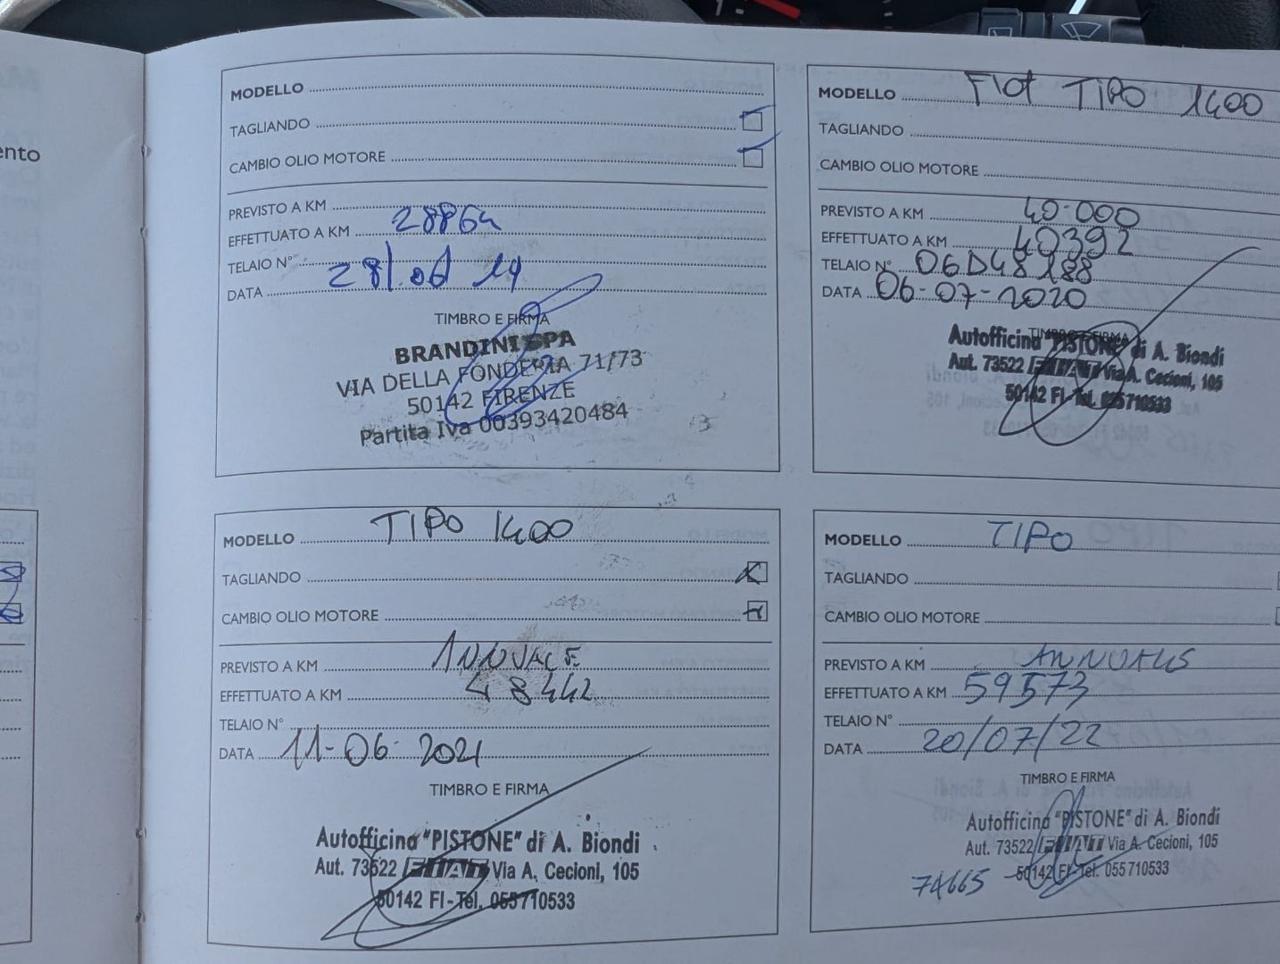 ento
MODELLO
TAGLIANDO
CAMBIO OLIO MOTORE
PREVISTO A KM
EFFETTUATO A KM 28864
TELAIO N°
DATA 28/.06 19
TIMBRO E FIRMA
BRANDINI SPA
VIA DELLA FONDERIA 71/73
50142 FIRENZE
Partita Iva 00393420484
MODELLO Fiat TIPO 1400
TAGLIANDO
CAMBIO OLIO MOTORE
PREVISTO A KM 40.000
EFFETTUATO A KM 40392
TELAIO N° 06D48188
DATA 06-07-2020
TIMBRO E FIRMA
Autofficina "PISTONE" di A. Biondi
Aut. 73522 FIAT Via A. Cecioni, 105
50142 FI-Tel. 055710533
MODELLO TIPO 1400
TAGLIANDO
CAMBIO OLIO MOTORE
PREVISTO A KM ANNUALE
EFFETTUATO A KM 48442
TELAIO N°
DATA 11-06-2021
TIMBRO E FIRMA
Autofficina "PISTONE" di A. Biondi
Aut. 73522 FIAT Via A. Cecioni, 105
50142 FI-Tel. 055710533
MODELLO TIPO
TAGLIANDO
CAMBIO OLIO MOTORE
PREVISTO A KM ANNUALE
EFFETTUATO A KM 59573
TELAIO N°
DATA 20/07/22
TIMBRO E FIRMA
Autofficina "PISTONE" di A. Biondi
Aut. 73522 FIAT Via A. Cecioni, 105
74665 50142 FI-Tel. 055710533